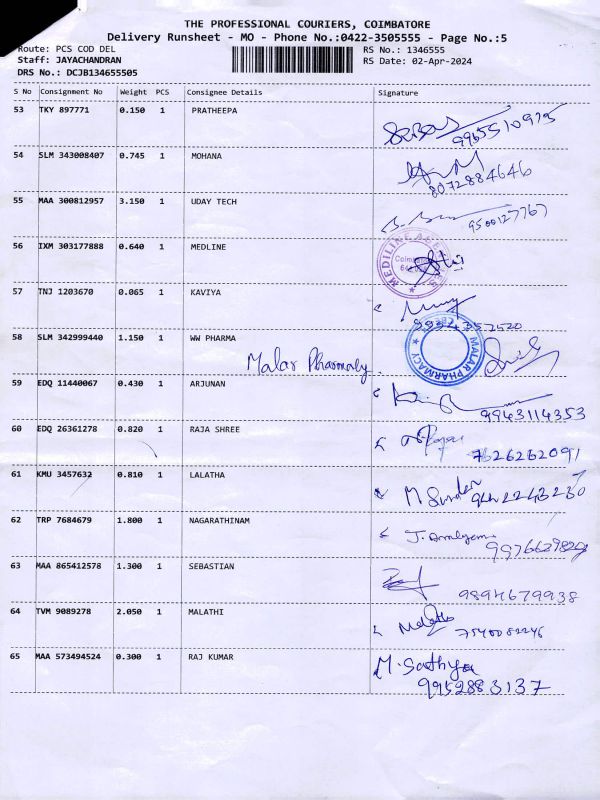 THE PROFESSIONAL COURIERS, COIMBATORE
Delivery Runsheet - MO - Phone No.:0422-3505555 - Page No.:5
Route: PCS COD DEL
RS No.: 1346555
Staff: JAYACHANDRAN
RS Date: 02-Apr-2024
DRS No.: DCJB134655505
S No Consignment No Weight PCS Consignee Details Signature
53 TKY 897771 0.150 1 PRATHEEPA
9965510975
54 SLM 343008407 0.745 1 MOHANA
8072884646
55 MAA 300812957 3.150 1 UDAY TECH
9500127767
56 IXM 303177888 0.640 1 MEDLINE
MEDILINE
57 TNJ 1203670 0.065 1 KAVIYA
58 SLM 342999440 1.150 1 WW PHARMA
Malar Pharmacy
MALAR PHARMACY
59 EDQ 11440067 0.430 1 ARJUNAN
9943114353
60 EDQ 26361278 0.820 1 RAJA SHREE
7626262091
61 KMU 3457632 0.810 1 LALATHA
62 TRP 7684679 1.800 1 NAGARATHINAM
63 MAA 865412578 1.300 1 SEBASTIAN
9894679938
64 TVM 9089278 2.050 1 MALATHI
65 MAA 573494524 0.300 1 RAJ KUMAR
M. Sathya
9952883137